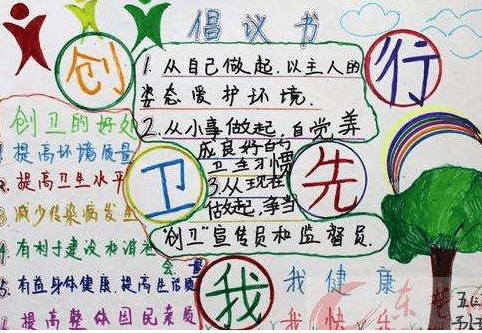 倡议书
创
行
1. 从自己做起,以主人的
姿态爱护环境.
2.从小事做起,自觉养
成良好的
卫生习惯
3.从现在
做起,争当
"创卫"宣传员和监督员.
卫
先
我
创卫的好处
1. 提高环境质量
2. 提高卫生水平
3. 减少传染病发生
4. 有利于建设和谐社
会
5. 有益身体健康,提高生活质
量
6. 提高整体国民素质
我健康
我快乐